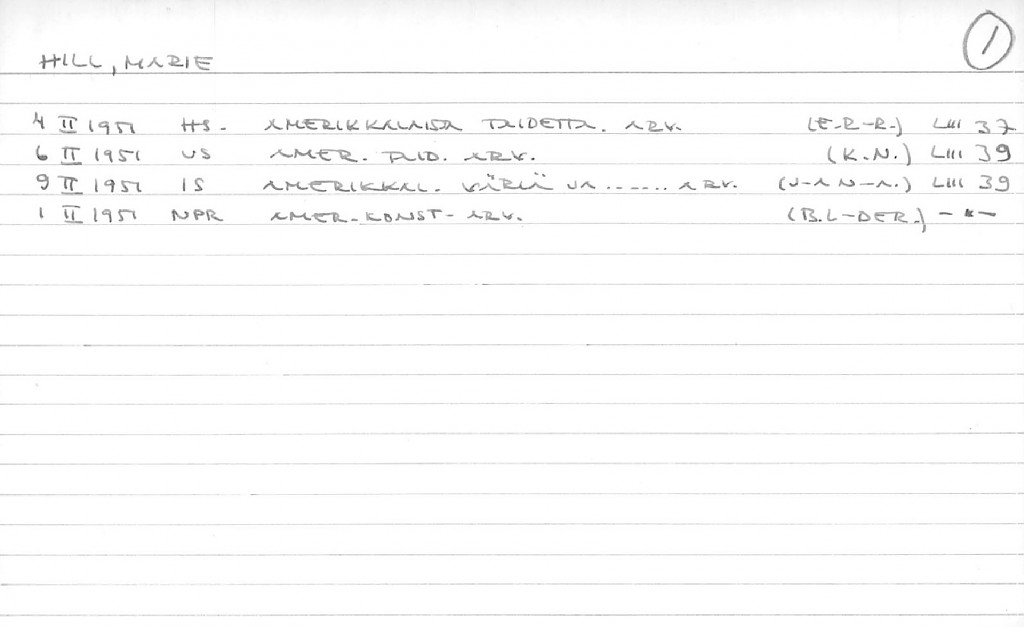 HILL, MARIE
1
4 II 1951 HS. AMERIKKALAISTA TAIDETTA. ARV. (E-R-R.) LIII 37
6 II 1951 US AMER. TAID. ARV. (K.N.) LIII 39
9 II 1951 IS AMERIKKAL. VÄRIÄ JA ...... ARV. (J-A N-A.) LIII 39
1 II 1951 NPR AMER-KONST- ARV. (B.L-DER.) -"-